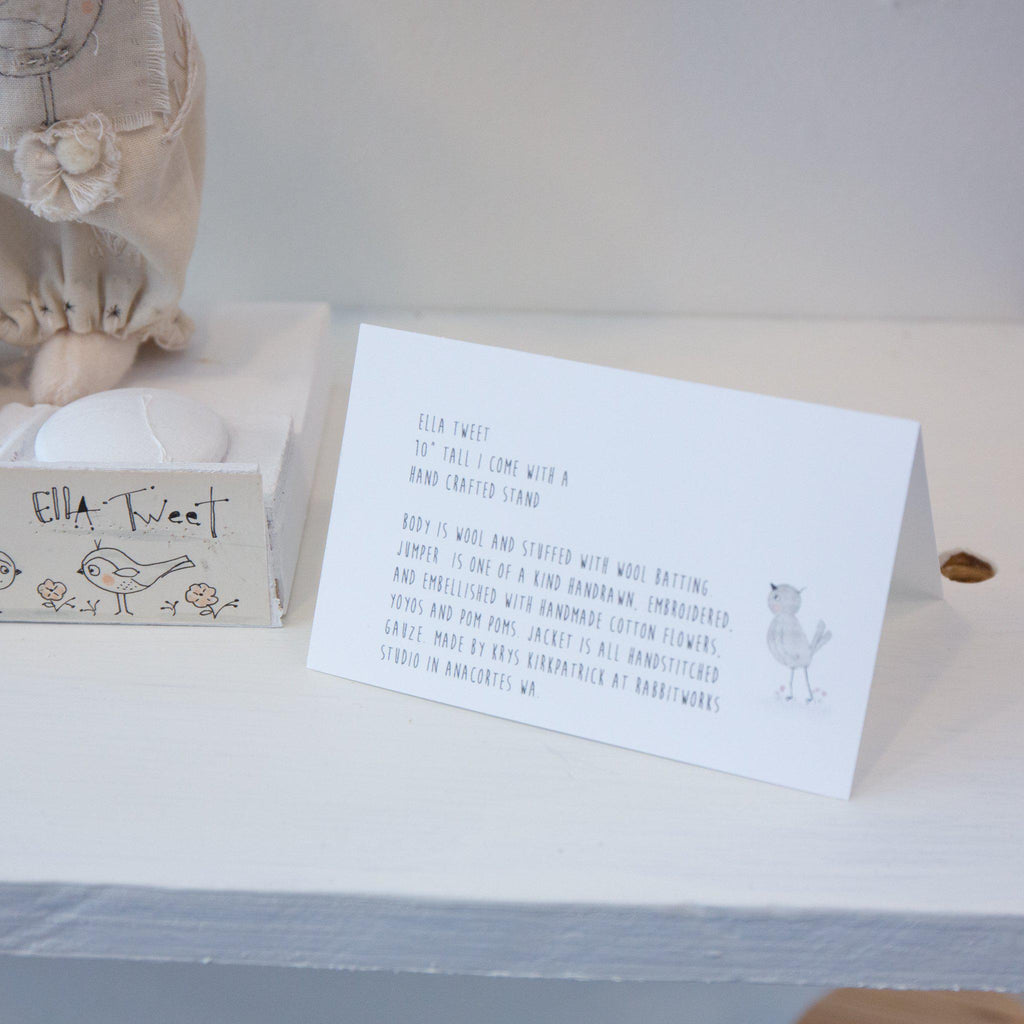 ELLA TWEET
ELLA TWEET
10" TALL I COME WITH A
HAND CRAFTED STAND
BODY IS WOOL AND STUFFED WITH WOOL BATTING.
JUMPER IS ONE OF A KIND HANDRAWN, EMBROIDERED,
AND EMBELLISHED WITH HANDMADE COTTON FLOWERS,
YOYOS AND POM POMS. JACKET IS ALL HANDSTITCHED
GAUZE. MADE BY KRYS KIRKPATRICK AT RABBITWORKS
STUDIO IN ANACORTES WA.